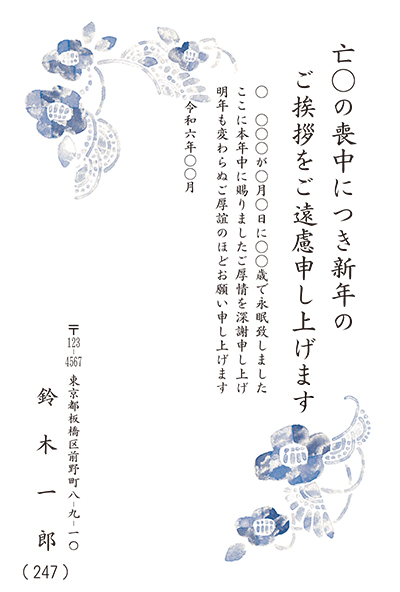 亡〇の喪中につき新年の
ご挨拶をご遠慮申し上げます
〇　〇〇〇が〇月〇日に〇〇歳で永眠致しました
ここに本年中に賜りましたご厚情を深謝申し上げ
明年も変わらぬご厚誼のほどお願い申し上げます
令和六年〇〇月
〒123-4567 東京都板橋区前野町八-九-一〇
鈴木一郎
(247)